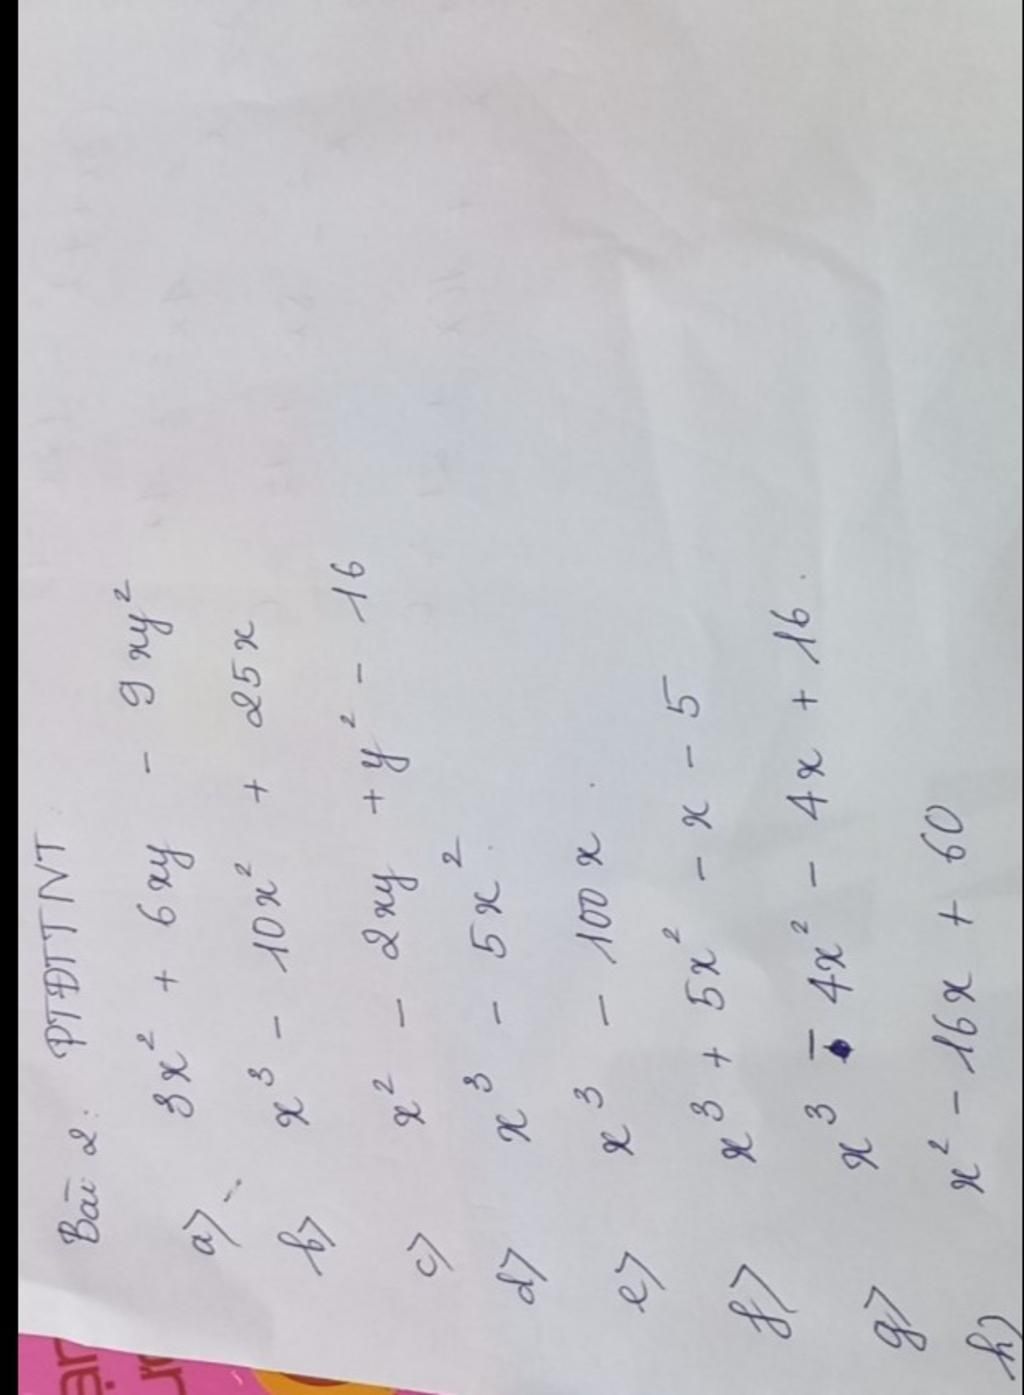 Bài 2: PTĐTTNT:
a) 3x² + 6xy - 9xy²
b) x³ - 10x² + 25x
c) x² - 2xy + y² - 16
d) x³ - 5x².
e) x³ - 100x.
f) x³ + 5x² - x - 5
g) x³ - 4x² - 4x + 16.
h) x² - 16x + 60